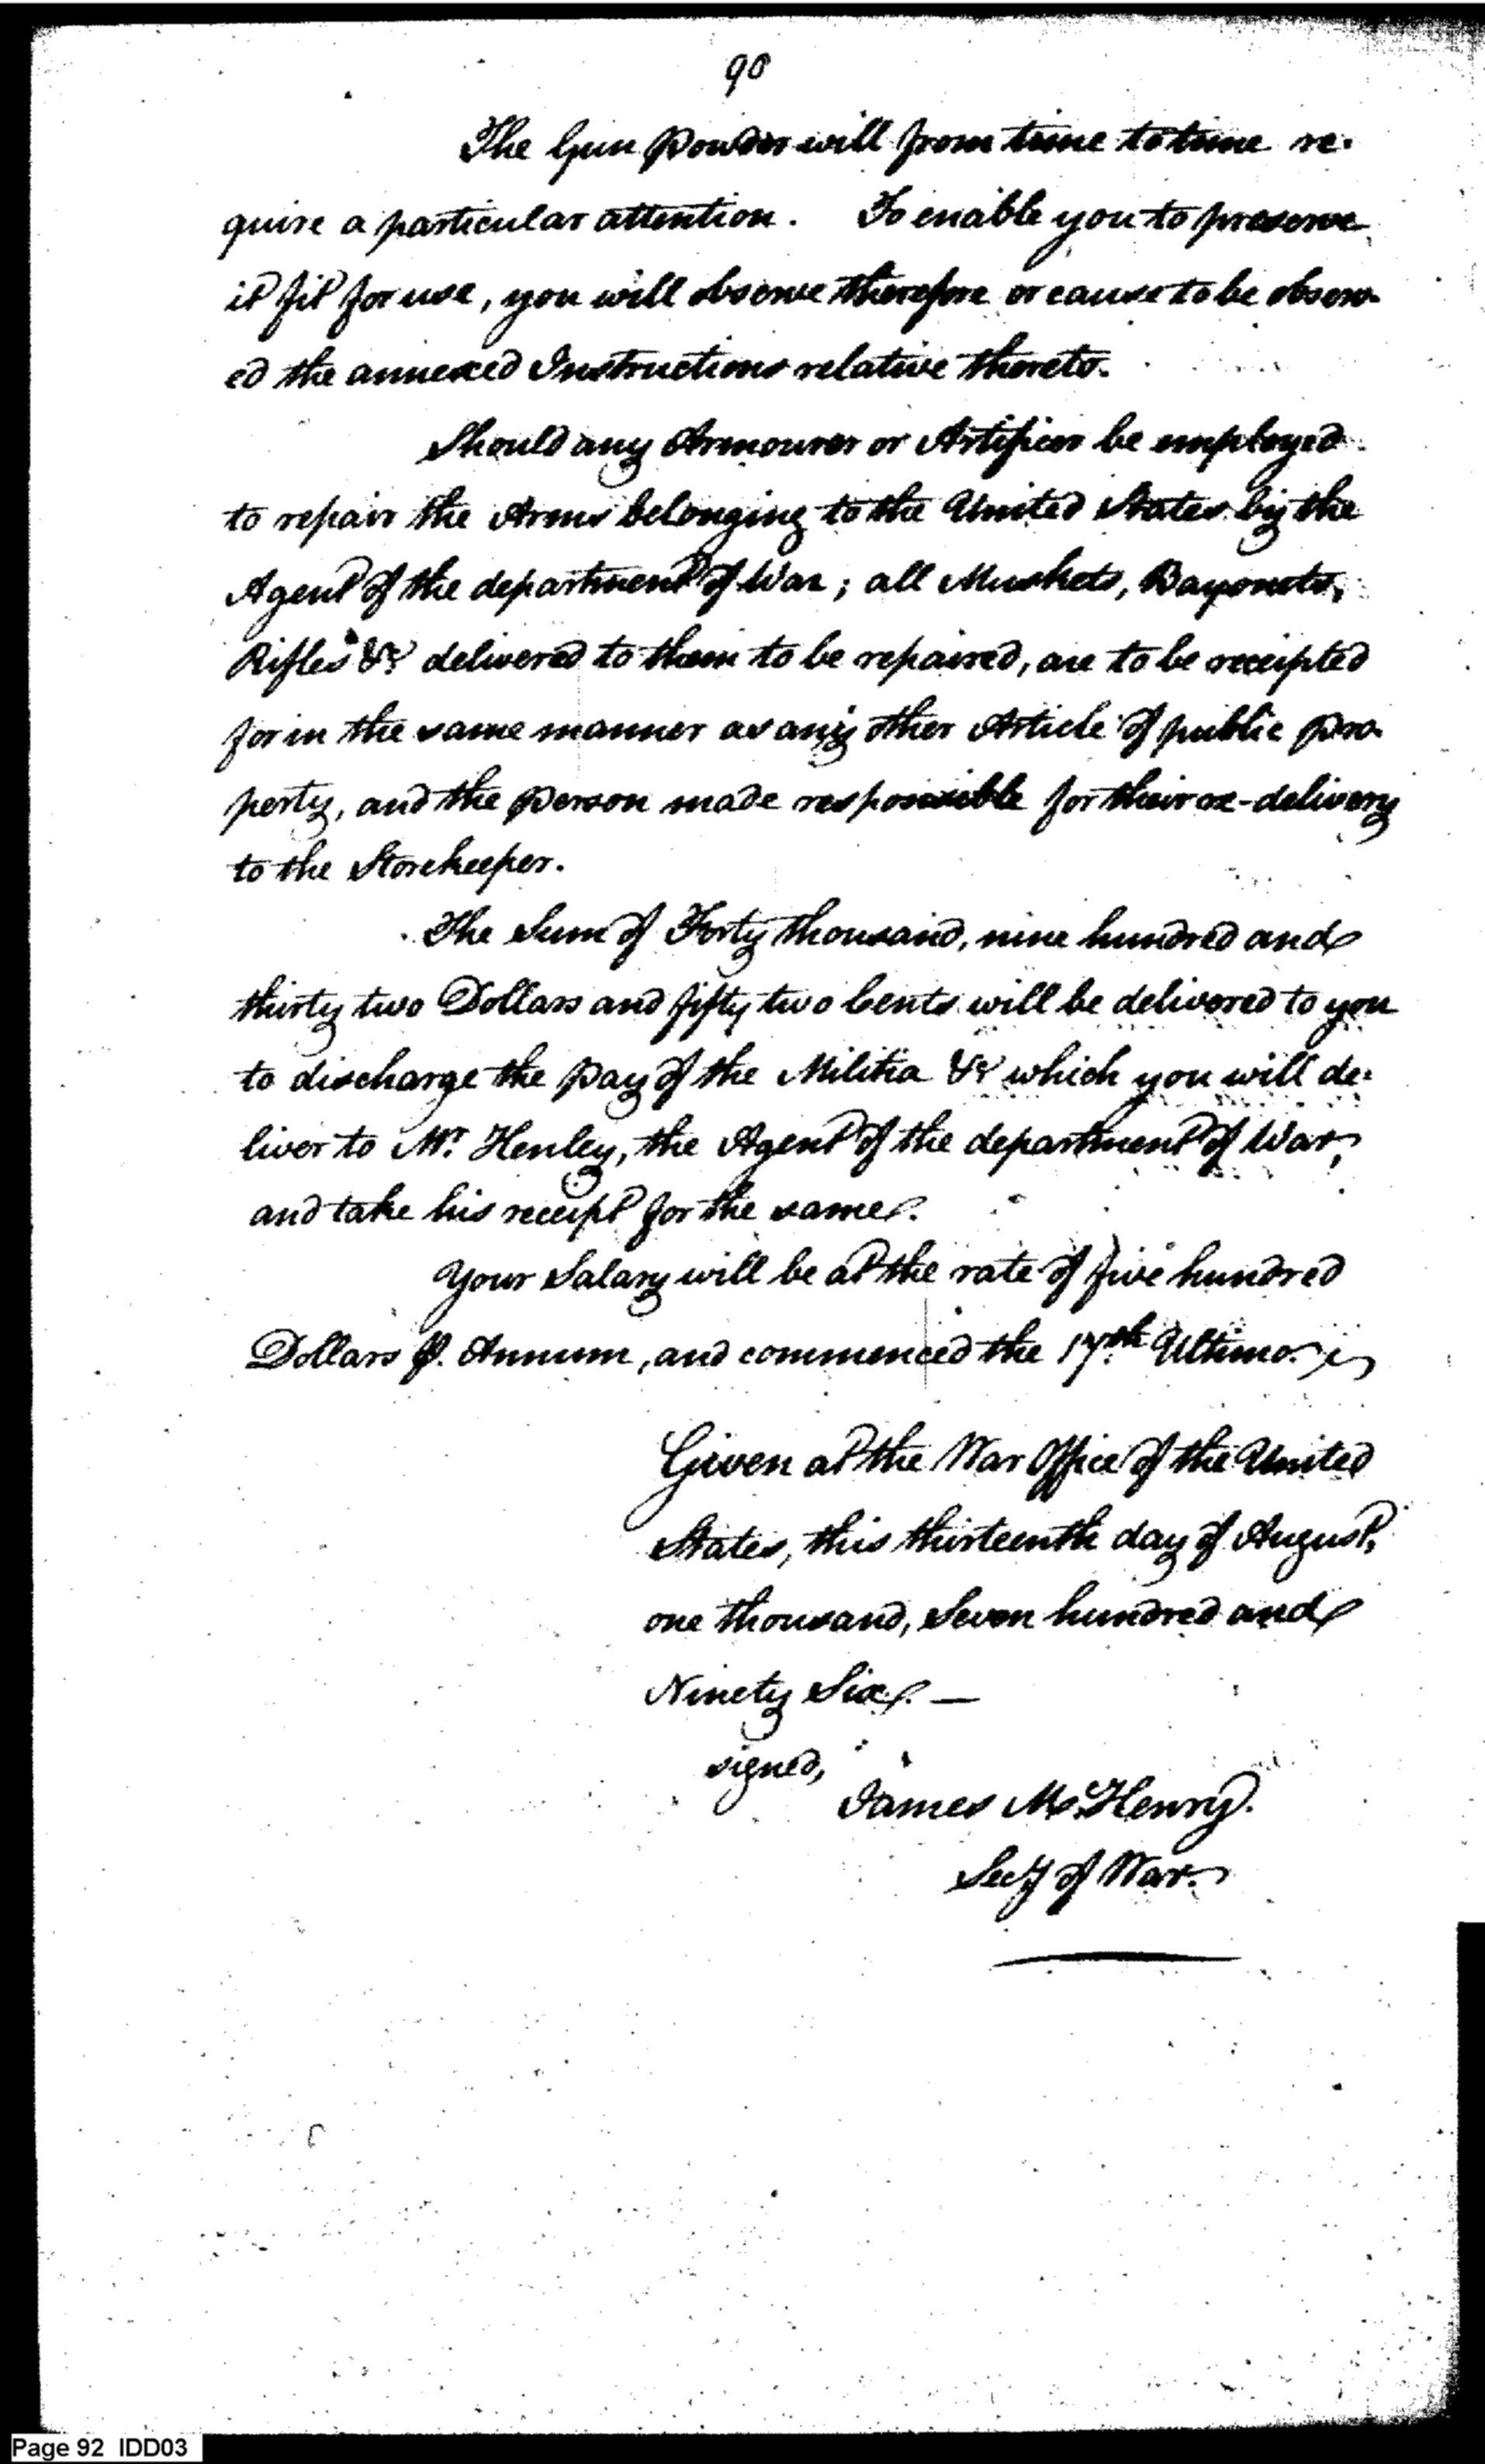 90
The Gun Powder will from time to time re-
quire a particular attention. To enable you to preserve
it fit for use, you will observe therefore or cause to be observ-
ed the annexed Instructions relative thereto.
Should any Armourer or Artificer be employed
to repair the Arms belonging to the United States by the
Agent of the department of War; all Muskets, Bayonets,
Rifles &c. delivered to them to be repaired, are to be receipted
for in the same manner as any other Article of public pro-
perty, and the Person made responsible for their re-delivery
to the Storekeeper.
The Sum of Forty thousand, nine hundred and
thirty two Dollars and fifty two Cents will be delivered to you
to discharge the Pay of the Militia &c which you will de-
liver to Mr. Henley, the Agent of the department of War,
and take his receipt for the same.
Your Salary will be at the rate of five hundred
Dollars P. Annum, and commenced the 17th Ultimo.
Given at the War Office of the United
States, this thirteenth day of August,
one thousand, Seven hundred and
Ninety Six. —
signed,
James McHenry.
Secy of War.
Page 92 IDD03